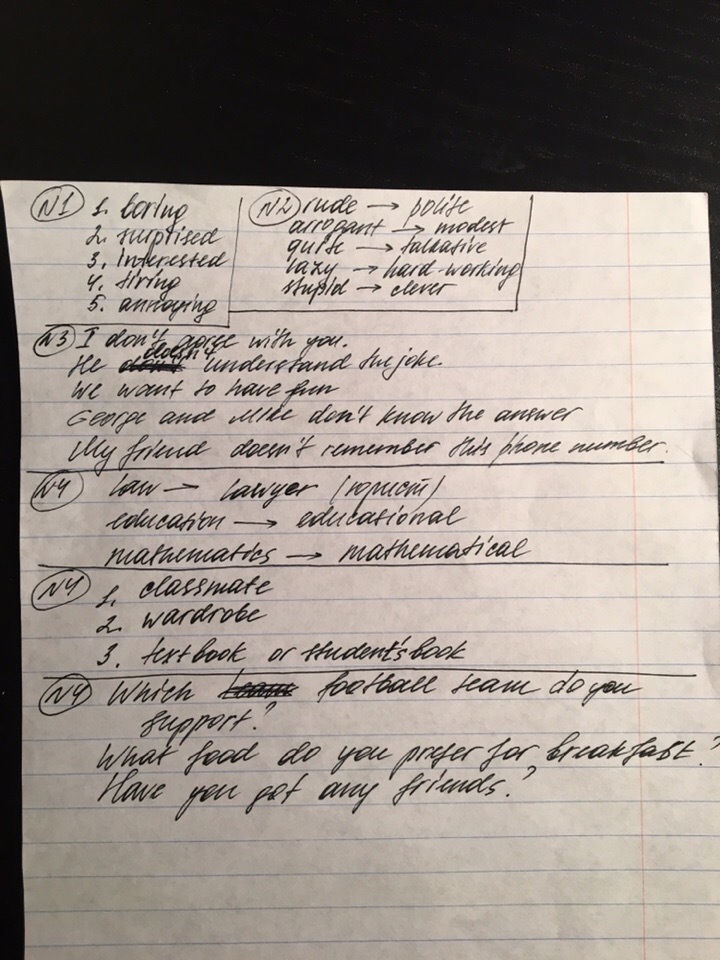 N1 1. boring
2. surprised
3. interested
4. tiring
5. annoying
N2 rude → polite
arrogant → modest
quite → talkative
lazy → hard-working
stupid → clever
N3 I don't agree with you.
He doesn't understand the joke.
We want to have fun
George and Mike don't know the answer
My friend doesn't remember this phone number.
N4 law → lawyer (юрист)
education → educational
mathematics → mathematical
N4 1. classmate
2. wardrobe
3. textbook or student's book
N4 Which football team do you
support?
What food do you prefer for breakfast?
Have you got any friends?